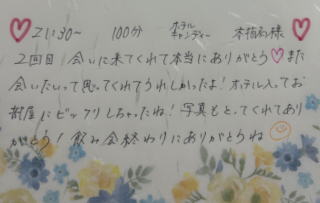 ♡ 21:30~ 100分 ホテルキャンディー 本指名様 ♡
2回目 会いに来てくれて本当にありがとう♡また
会いたいって思ってくれてうれしかったよ！ホテル入ってお
部屋にビックリしちゃったね！写真もとってくれてあり
がとう！飲み会終わりにありがとうね